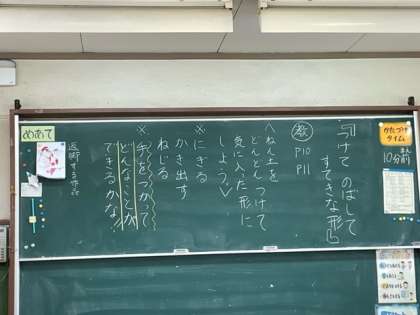 かたづけ
タイム
10分前
「つけて のばして
すてきな形」
教
P10
P11
＜ねん土を
どんどん つけて
気に入った形に
しよう＞
※にぎる
かき出す
ねじる
※手をつかって
どんなことが
できるかな!!
めあて